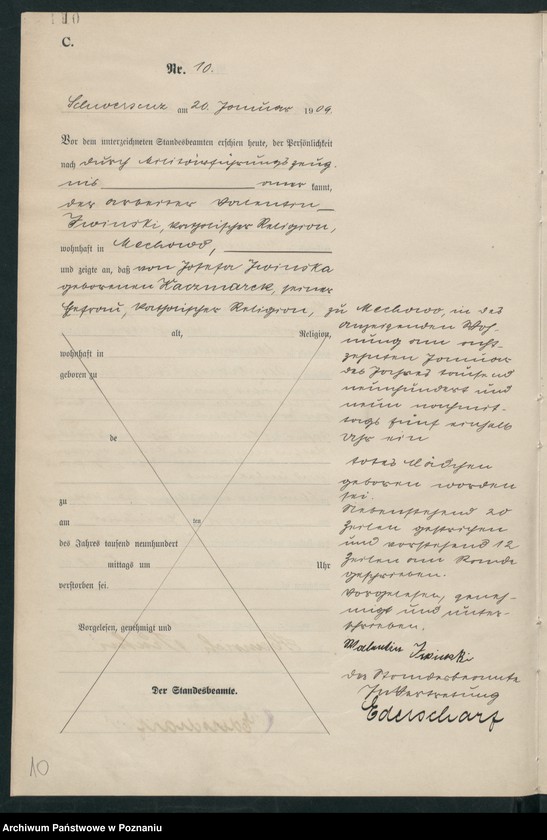 110
C.
Nr. 10.
Schwersenz am 20. Januar 1909.
Vor dem unterzeichneten Standesbeamten erschien heute, der Persönlichkeit
nach durch
nis aner kannt,
der Arbeiter Valentin
Iwinski, katholischer Religion,
wohnhaft in Mechowo,
und zeigte an, daß von Josefa Iwinska
geborenen Kaczmarek, seiner
Ehefrau, katholischer Religion, zu Mechowo, in des
alt, Religion,
wohnhaft in
geboren zu
de
zu
am
des Jahres tausend neunhundert
mittags um Uhr
verstorben sei.
Vorgelesen, genehmigt und
Der Standesbeamte.
anzeigenden Woh-
nung am acht-
zehnten Januar
des Jahres tausend
neunhundert und
neun nachmit-
tags fünf einhalb
Uhr ein
totes Mädchen
geboren worden
sei.
Nebenstehend 20
Zeilen gestrichen
und vorstehend 12
Zeilen am Rande
geschrieben.
Vorgelesen, geneh-
migt und unter-
schrieben.
Walentin Iwinski
Der Standesbeamte
In Vertretung
Ederscharf
10
Archiwum Państwowe w Poznaniu